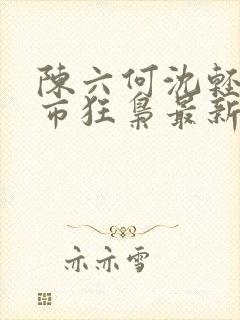 陳六何沈輕
市狂梟最新
亦亦雪